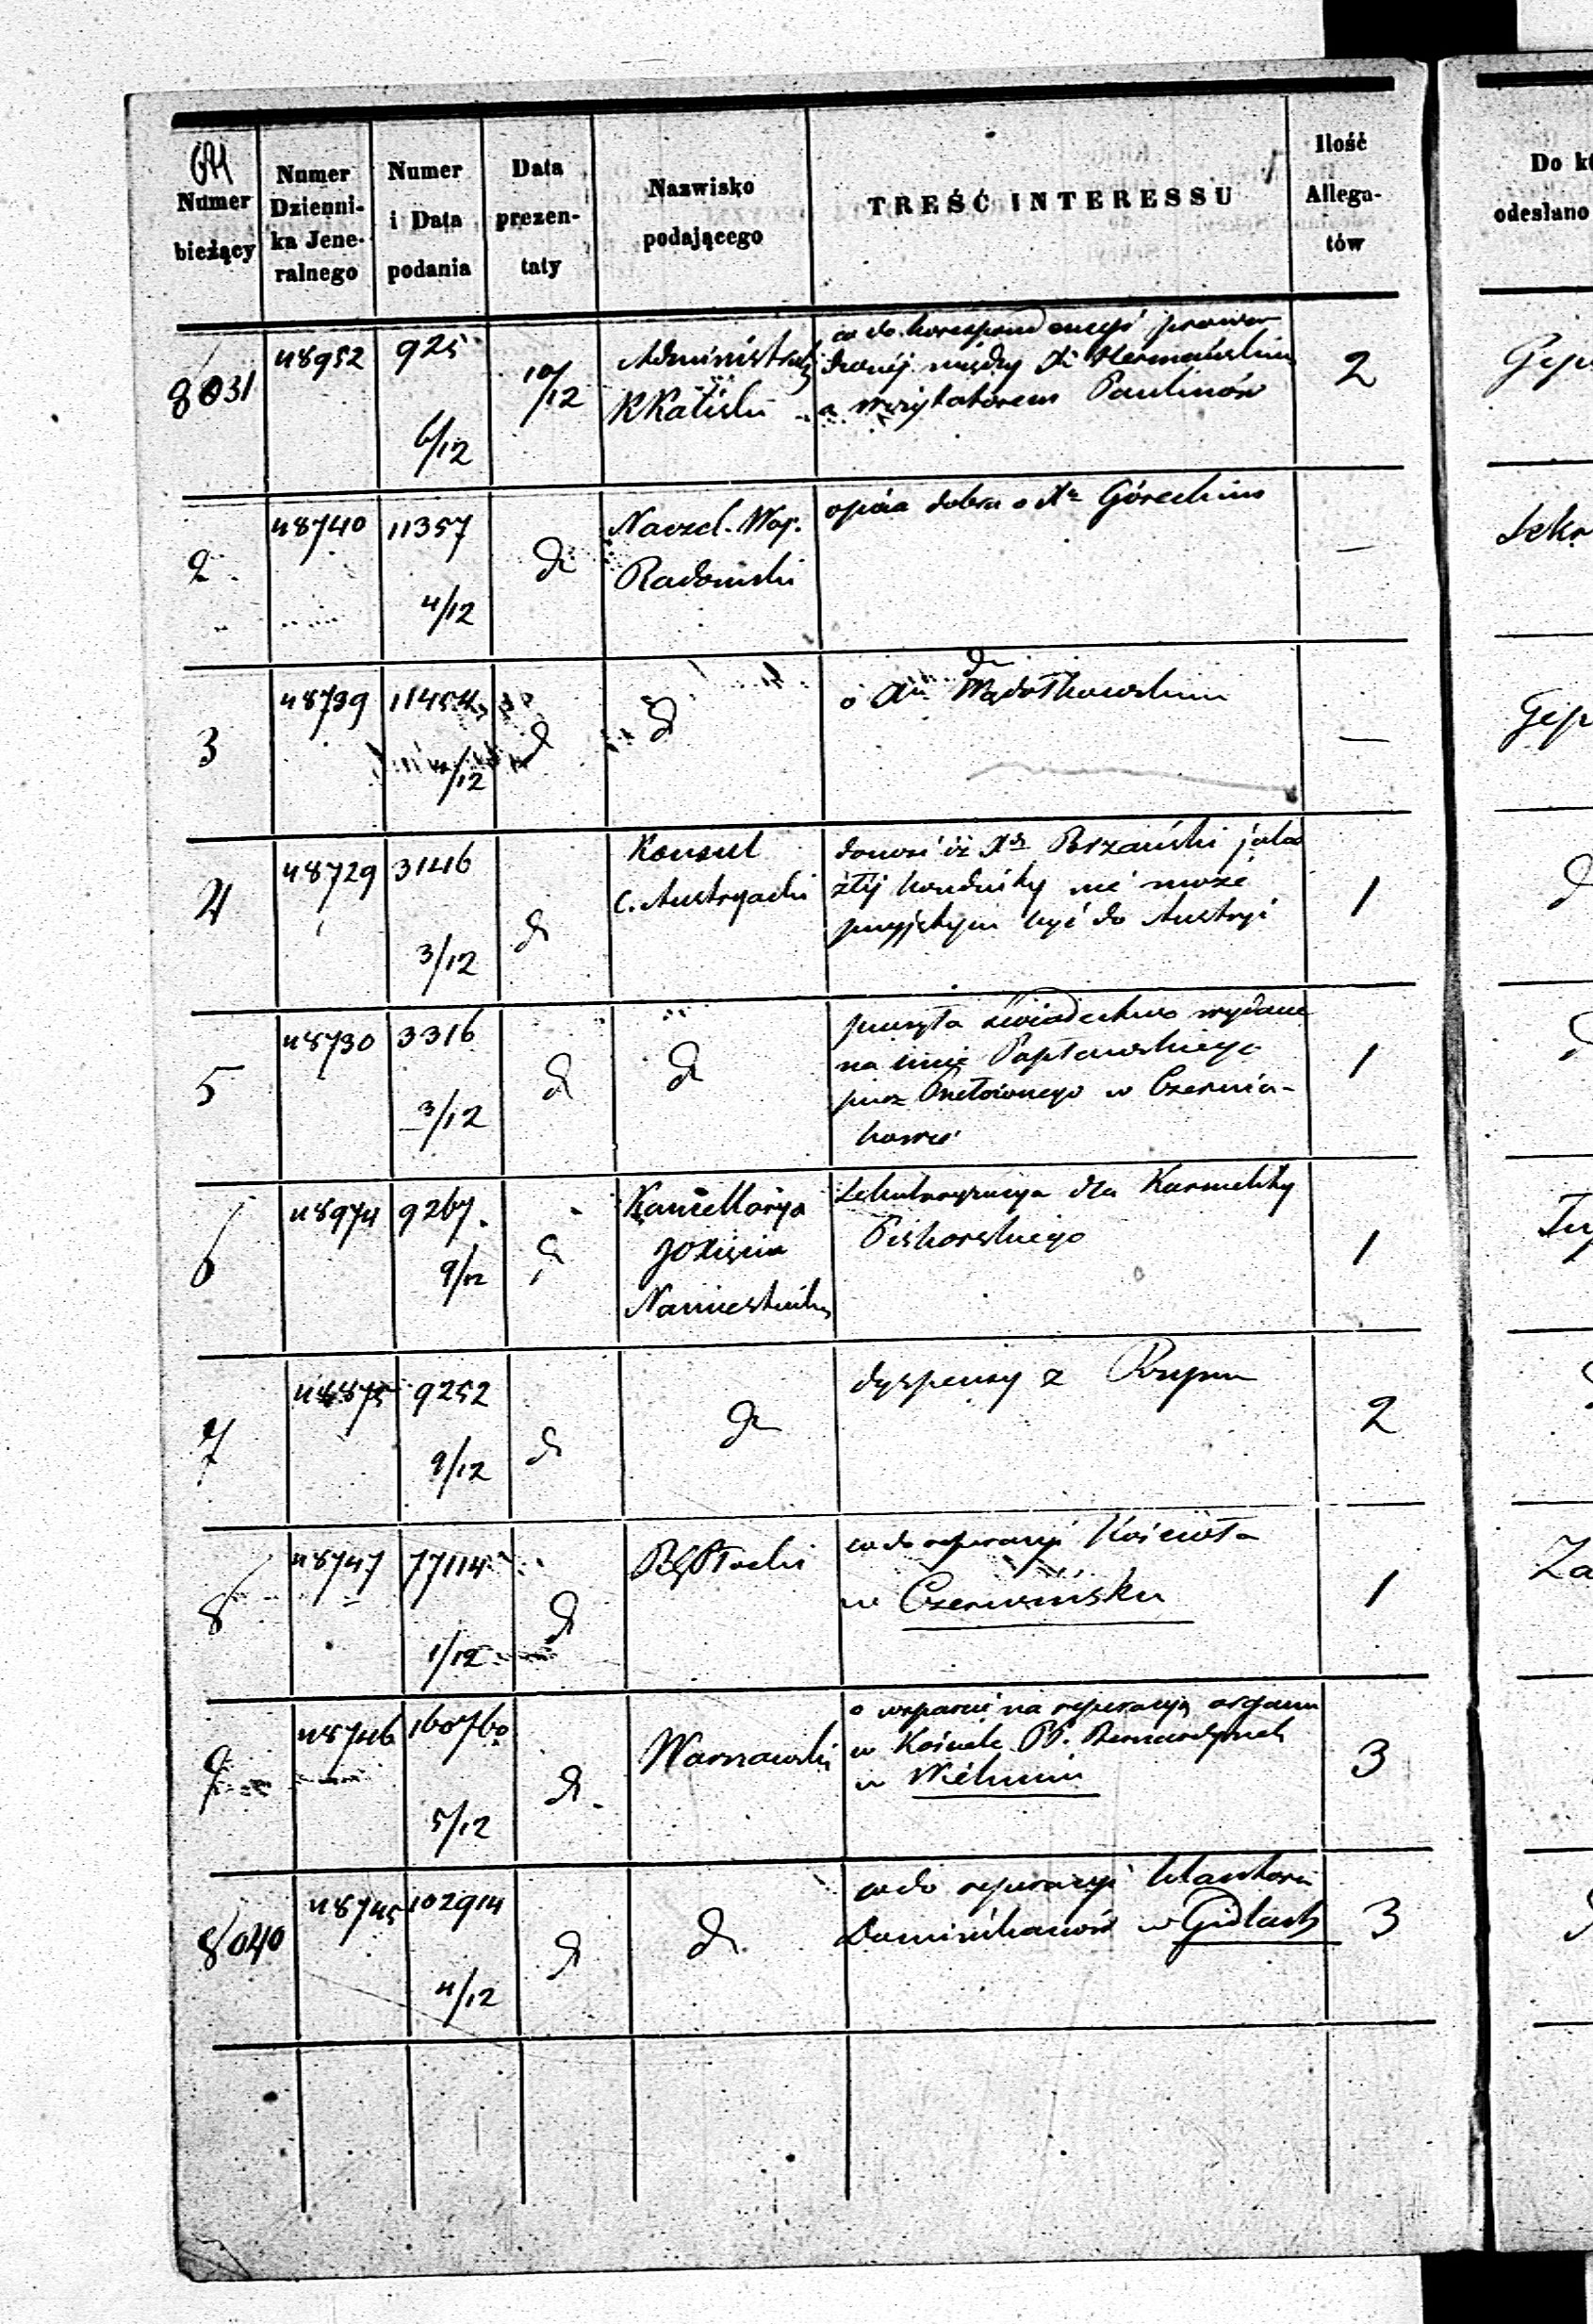 Numer bieżący
Numer Dzienni-ka Jene-ralnego
Numer i Data podania
Data prezen-taty
Nazwisko podającego
TREŚĆ INTERESSU
Ilość Allega-tów
Do
odesłano
8031
48952
925
6/12
10/12
co do korespondencyi prowa-
dzonéj między Xm Hermańskim
a wizytatorem Paulinów
2
2
48740
11357
4/12
Naczel. Woj.
Radomski
opinia dobra o Xu Góreckim
—
3
48739
/12
o
—
4
48729
3146
3/12
Konsul
C. Austryacki
donosi iż Xdz
złéj konduity nie może
przyjętym być do Austryi
1
5
48730
3316
3/12
przesyła świadectwo wydane
na imię
przez Przełożonego w Czernia-
kowie
1
6
48974
9267.
9/12
Kancellarya
JO Xięcia
Namiestnika
Sekularyzacya dla Karmelity
Piskorskiego
1
7
48875
9252
9/12
dyspensy z Rzymu
2
8
48747
77114
1/12
RG Płocki
co do reperacyi Kościoła
w Czerwińsku
1
9
48746
160760
5/12
Warszawski
o wsparcie na reperacyą organu
w Kościele PP. Bernardynek
w Wieluniu
3
8040
48745
102914
4/12
co do reperacyi Klasztoru
Dominikanów w Gidlach
3